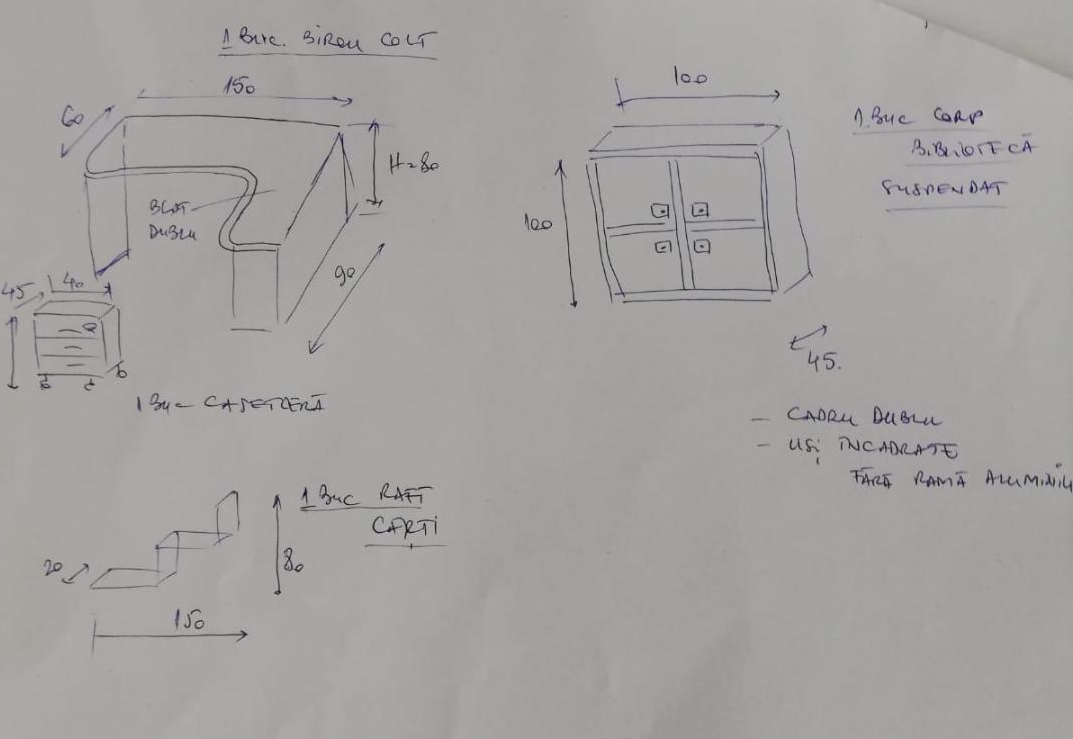 1 BUC. BIROU COLT
150
60
H=80
BLAT
DUBLU
90
45
40
1 BUC CASETIERĂ
1 BUC RAFT
CĂRTI
20
80
150
100
1 BUC CORP
BIBLIOTECĂ
SUSPENDAT
100
45.
- CADRU DUBLU
- USI ÎNCADRATE
FĂRĂ RAMĂ ALUMINIU